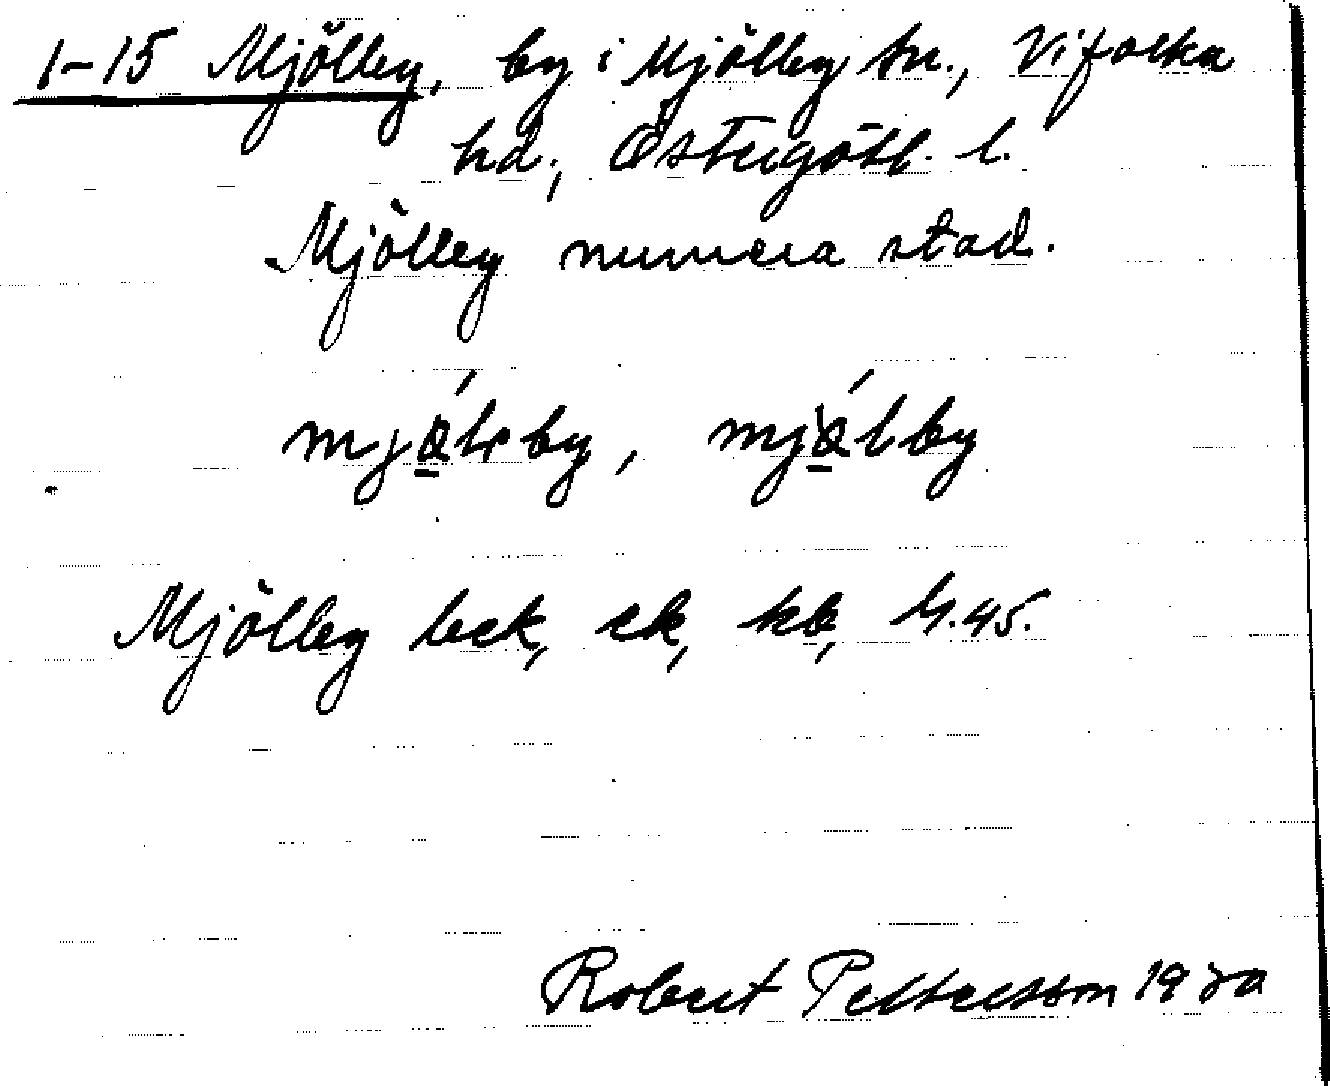 1-15 Mjölby, by i Mjölby sn., Vifolka
hd., Östergötl. l.
Mjölby numera stad.
mjö́lby
Mjölby beck, ek, kb,
Robert Pettersson 19